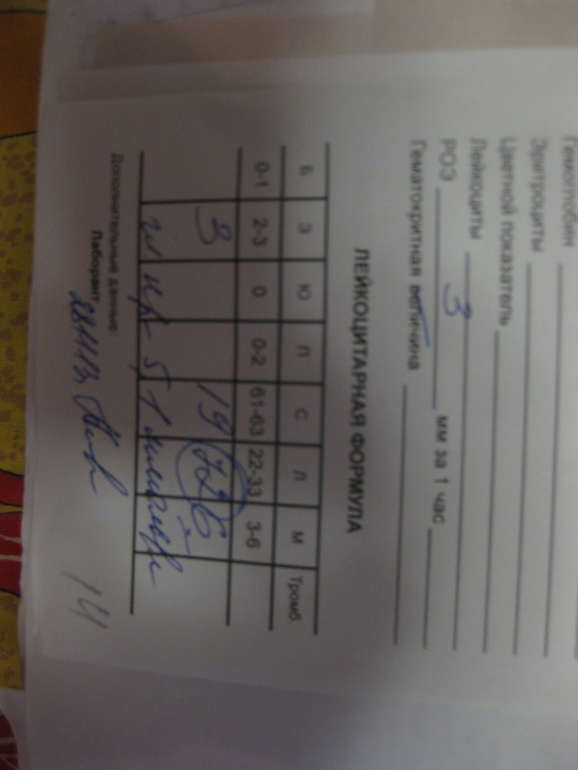 Гемоглобин
Эритроциты
Цветной показатель
Лейкоциты 3
РОЭ мм за 1 час
Гематокритная величина
ЛЕЙКОЦИТАРНАЯ ФОРМУЛА
Б Э Ю П С Л М Тромб.
0-1 2-3 0 0-2 61-63 22-33 3-6
3 19 72 6
Дополнительные данные:
Лаборант
14